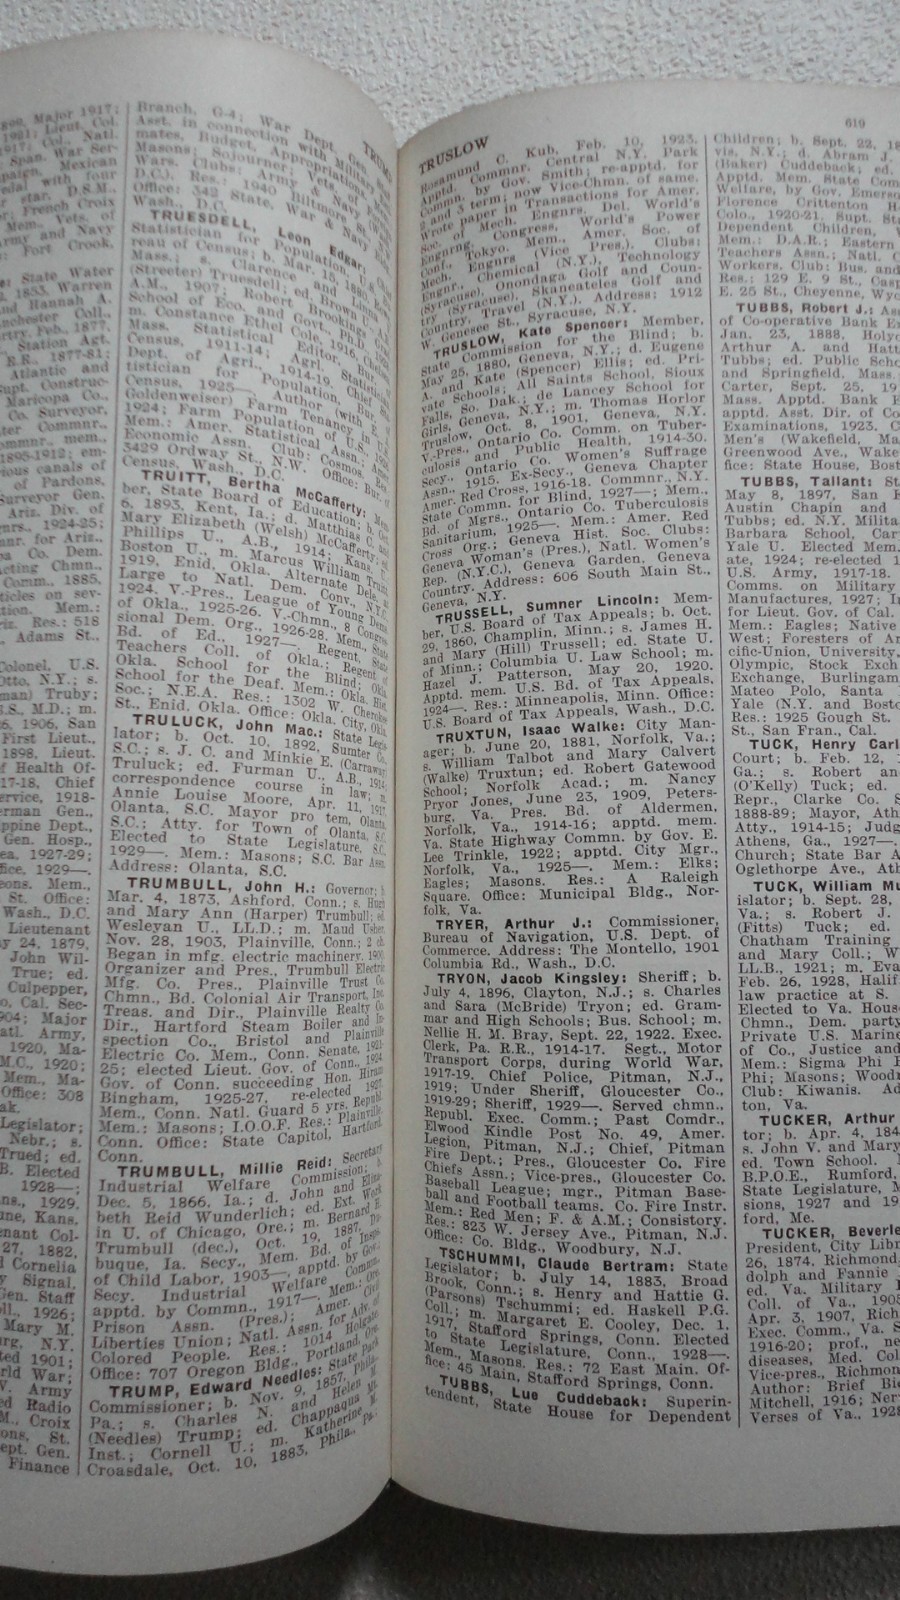 Major 1917;
Lieut. Col.
Col. Natl.
Span. War Ser-
Mexican
with four
star. D.S.M.,
French Croix
Mem., Vets. of
and Navy
Fort Crook,
State Water
1853, Warren
Hannah A.
Coll.,
Feb., 1877,
Station Agt.
R.R., 1877-81;
Atlantic and
Supt. Construc-
Maricopa Co.,
Co. Surveyor,
Commnr.,
Commnr., mem.,
1895-1912; em-
canals of
of Pardons,
Surveyor Gen.
Ariz. Div. of
1924-25;
for Ariz.,
Co. Dem.
Acting Chmn.,
Comm., 1885,
on sev-
Mem.:
Res.: 518
Adams St.,
Colonel, U.S.
Otto, N.Y.; s.
Truby;
M.D.; m.
1906, San
First Lieut.,
1898, Lieut.
of Health Of-
17-18, Chief
1918-
Gen.,
Dept.,
Gen. Hosp.,
1927-29;
1929—.
Mem.,
St. Office:
Wash., D.C.
Lieutenant
24, 1879,
John Wil-
True; ed.
Culpepper,
Cal. Sec-
1904; Major
Natl. Army,
1920, Ma-
M.C., 1920;
Mem., Ma-
Office: 308
Legislator;
Nebr.; s.
Trued; ed.
B. Elected
1928—;
1929.
Kans.
Col-
27, 1882,
Cornelia
Signal,
Gen. Staff
1926;
Mary M.
N.Y.
1901;
World War;
Army
Radio
Croix
St.
Gen.
Finance
TRUMP
Branch, G-4; War Dept. Gen.
Asst. in connection with Military Esti-
mates, Budget, Appropriations
Masons; Sojourner; Vets. of Foreign
Wars. Clubs: Army & Navy
D.C.). Res.: 1940 Biltmore St.
Office: 342 State, War & Navy
Wash., D.C.
TRUESDELL, Leon Edgar:
Statistician for Population, Bu-
reau of Census; b. Mar. 15, 1880,
Mass.; s. Clarence
(Streeter) Truesdell; ed. Brown U.
A.M., 1907; Robert Brookings
School of Eco. and Govt., Ph.D.
m. Constance Ethel Cole, 1916,
Mass. Statistical Editor, Bur.
Census, 1911-14; Agri. Statist.,
Dept. of Agri., 1914-19, Chief Sta-
tistician for Population, Bur. of
Census, 1925—. Author (with E. A.
Goldenweiser) Farm Tenancy in U.S.,
1924; Farm Population of U.S., 1926.
Mem.: Amer. Statistical Assn., Amer.
Economic Assn. Club: Cosmos. Res.:
3429 Ordway St., N.W. Office: Bur. of
Census, Wash., D.C.
TRUITT, Bertha McCafferty: Mem-
ber, State Board of Education; b. Oct.
6, 1893, Kent, Ia.; d. Matthias C. and
Mary Elizabeth (Welsh) McCafferty; ed.
Phillips U., A.B., 1914; Kans. U.,
Boston U., m. Marcus William Truitt,
1919, Enid, Okla. Alternate Dele. at
Large to Natl. Dem. Conv., N.Y.C.
1924. V.-Pres., League of Young Dems.
of Okla., 1925-26. V.-Chmn., 8 Congres-
sional Dem. Org., 1926-28. Mem., State
Bd. of Ed., 1927—. Regent, State
Teachers Coll. of Okla.; Regent of
Okla. School for the Blind; Okla.
School for the Deaf. Mem.: Okla. Hist.
Soc.; N.E.A. Res.: 1302 W. Cherokee
St., Enid, Okla. Office: Okla. City, Okla.
TRULUCK, John Mac.: State Legis-
lator; b. Oct. 10, 1892, Sumter Co.,
S.C.; s. J. C. and Minkie E. (Carraway)
Truluck; ed. Furman U., A.B., 1914;
correspondence course in law; m.
Annie Louise Moore, Apr. 11, 1917,
Olanta, S.C. Mayor pro tem, Olanta,
S.C.; Atty. for Town of Olanta, S.C.
Elected to State Legislature, S.C.,
1929—. Mem.: Masons; S.C. Bar Assn.
Address: Olanta, S.C.
TRUMBULL, John H.: Governor; b.
Mar. 4, 1873, Ashford, Conn.; s. Hugh
and Mary Ann (Harper) Trumbull; ed.
Wesleyan U., LL.D.; m. Maud Usher,
Nov. 28, 1903, Plainville, Conn.; 2 ch.
Began in mfg. electric machinery, 1900.
Organizer and Pres., Trumbull Electric
Mfg. Co. Pres., Plainville Trust Co.
Chmn., Bd. Colonial Air Transport, Inc.
Treas. and Dir., Plainville Realty Co.
Dir., Hartford Steam Boiler and In-
spection Co., Bristol and Plainville
Electric Co. Mem., Conn. Senate, 1921-
25; elected Lieut. Gov. of Conn., 1924.
Gov. of Conn. succeeding Hon. Hiram
Bingham, 1925-27, re-elected 1927.
Mem., Conn. Natl. Guard 5 yrs. Republ.
Mem.: Masons; I.O.O.F. Res.: Plainville,
Conn. Office: State Capitol, Hartford,
Conn.
TRUMBULL, Millie Reid: Secretary
Industrial Welfare Commission; b.
Dec. 5, 1866, Ia.; d. John and Eliza-
beth Reid Wunderlich; ed. Ext. Work
in U. of Chicago, Ore.; m. Bernard H.
Trumbull (dec.), Oct. 19, 1887, Du-
buque, Ia. Secy., Mem. Bd. of Insps.
of Child Labor, 1903—, apptd. by Gov.;
Secy. Industrial Welfare Commn.
apptd. by Commn., 1917—. Mem.: Ore.
Prison Assn. (Pres.); Amer. Civil
Liberties Union; Natl. Assn. for Adv. of
Colored People. Res.: 1014 Holgate.
Office: 707 Oregon Bldg., Portland, Ore.
TRUMP, Edward Needles: State Park
Commissioner; b. Nov. 9, 1857, Phila.,
Pa.; s. Charles N. and Helen M.
(Needles) Trump; ed. Chappaqua Mt.
Inst.; Cornell U.; m. Katherine M.
Croasdale, Oct. 10, 1883, Phila., Pa.;
TRUSLOW
619
Rosamund C. Kub, Feb. 10, 1923.
Apptd. Commnr. Central N.Y. Park
Commn. by Gov. Smith; re-apptd. for
2 and 3 term; now Vice-Chmn. of same.
Wrote paper in Transactions for Amer.
Soc. of Mech. Engnrs. Del. World's
Engnrng. Congress, World's Power
Conf., Tokyo. Mem., Amer. Soc. of
Mech. Engnrs (Vice Pres.). Clubs:
Engnr., Chemical (N.Y.), Technology
(Syracuse), Onondaga Golf and Coun-
try (Syracuse), Skaneateles Golf and
Country, Travel (N.Y.). Address: 1912
W. Genesee St., Syracuse, N.Y.
TRUSLOW, Kate Spencer: Member,
State Commission for the Blind; b.
May 25, 1880, Geneva, N.Y.; d. Eugene
A. and Kate (Spencer) Ellis; ed. Pri-
vate Schools; All Saints School, Sioux
Falls, So. Dak.; de Lancey School for
Girls, Geneva, N.Y.; m. Thomas Horlor
Truslow, Oct. 8, 1901, Geneva, N.Y.
V.-Pres., Ontario Co. Comm. on Tuber-
culosis and Public Health, 1914-30.
Secy., Ontario Co. Women's Suffrage
Assn., 1915. Ex-Secy., Geneva Chapter
Amer. Red Cross, 1916-18. Commnr., N.Y.
State Commn. for Blind, 1927—; Mem.,
Bd. of Mgrs., Ontario Co. Tuberculosis
Sanitarium, 1925—. Mem.: Amer. Red
Cross Org.; Geneva Hist. Soc. Clubs:
Geneva Woman's (Pres.), Natl. Women's
Rep. (N.Y.C.), Geneva Garden, Geneva
Country. Address: 606 South Main St.,
Geneva, N.Y.
TRUSSELL, Sumner Lincoln: Mem-
ber, U.S. Board of Tax Appeals; b. Oct.
29, 1860, Champlin, Minn.; s. James H.
and Mary (Hill) Trussell; ed. State U.
of Minn.; Columbia U. Law School; m.
Hazel J. Patterson, May 20, 1920.
Apptd. mem. U.S. Bd. of Tax Appeals,
1924—. Res.: Minneapolis, Minn. Office:
U.S. Board of Tax Appeals, Wash., D.C.
TRUXTUN, Isaac Walke: City Man-
ager; b. June 20, 1881, Norfolk, Va.;
s. William Talbot and Mary Calvert
(Walke) Truxtun; ed. Robert Gatewood
School; Norfolk Acad.; m. Nancy
Pryor Jones, June 23, 1909, Peters-
burg, Va. Pres. Bd. of Aldermen,
Norfolk, Va., 1914-16; apptd. mem.
Va. State Highway Commn. by Gov. E.
Lee Trinkle, 1922; apptd. City Mgr.,
Norfolk, Va., 1925—. Mem.: Elks;
Eagles; Masons. Res.: A Raleigh
Square. Office: Municipal Bldg., Nor-
folk, Va.
TRYER, Arthur J.: Commissioner,
Bureau of Navigation, U.S. Dept. of
Commerce. Address: The Montello, 1901
Columbia Rd., Wash., D.C.
TRYON, Jacob Kingsley: Sheriff; b.
July 4, 1896, Clayton, N.J.; s. Charles
and Sara (McBride) Tryon; ed. Gram-
mar and High Schools; Bus. School; m.
Nellie H. M. Bray, Sept. 22, 1922. Exec.
Clerk, Pa. R.R., 1914-17. Segt., Motor
Transport Corps, during World War,
1917-19. Chief Police, Pitman, N.J.,
1919; Under Sheriff, Gloucester Co.,
1919-29; Sheriff, 1929—. Served chmn.,
Republ. Exec. Comm.; Past Comdr.,
Elwood Kindle Post No. 49, Amer.
Legion, Pitman, N.J.; Chief, Pitman
Fire Dept.; Pres., Gloucester Co. Fire
Chiefs Assn.; Vice-pres., Gloucester Co.
Baseball League; mgr., Pitman Base-
ball and Football teams. Co. Fire Instr.
Mem.: Red Men; F. & A.M.; Consistory.
Res.: 823 W. Jersey Ave., Pitman, N.J.
Office: Co. Bldg., Woodbury, N.J.
TSCHUMMI, Claude Bertram: State
Legislator; b. July 14, 1883, Broad
Brook, Conn.; s. Henry and Hattie G.
(Parsons) Tschummi; ed. Haskell P.G.
Coll.; m. Margaret E. Cooley, Dec. 1,
1917, Stafford Springs, Conn. Elected
to State Legislature, Conn., 1928—.
Mem., Masons. Res.: 72 East Main. Of-
fice: 45 Main, Stafford Springs, Conn.
TUBBS, Lue Cuddeback: Superin-
tendent, State House for Dependent
Children; b. Sept. 22, 18
vis, N.Y.; d. Abram J.
(Baker) Cudeback; ed.
Apptd. Mem. State Com
Welfare, by Gov. Emerso
Florence Crittenton H
Colo., 1920-21. Supt. Sta
Dependent Children, W
Mem.: D.A.R.; Eastern
Teachers Assn.; Natl. C
Workers. Club: Bus. and
Res.: 129 E. 9 St., Casp
E. 25 St., Cheyenne, Wyo
TUBBS, Robert J.: Ass
of Co-operative Bank Ex
Jan. 23, 1888, Holyo
Arthur A. and Hatt
Tubbs; ed. Public Scho
and Springfield, Mass.
Carter, Sept. 25, 19
Mass. Apptd. Bank E
apptd. Asst. Dir. of Co
Examinations, 1923. C
Men's (Wakefield, Ma
Greenwood Ave., Wake
fice: State House, Bost
TUBBS, Tallant: St
May 8, 1897, San F
Austin Chapin and
Tubbs; ed. N.Y. Milita
Barbara School, Car
Yale U. Elected Mem.
ate, 1924; re-elected 1
U.S. Army, 1917-18.
Comms. on Military
Manufactures, 1927; In
for Lieut. Gov. of Cal.
Mem.: Eagles; Native
West; Foresters of Am
cific-Union, University,
Olympic, Stock Exch
Exchange, Burlingam
Mateo Polo, Santa
Yale (N.Y. and Bosto
Res.: 1925 Gough St.
St., San Fran., Cal.
TUCK, Henry Carl
Court; b. Feb. 12, 1
Ga.; s. Robert an
(O'Kelly) Tuck; ed.
Repr., Clarke Co. S
1888-89; Mayor, Athe
Atty., 1914-15; Judg
Athens, Ga., 1927—.
Church; State Bar A
Oglethorpe Ave., Ath
TUCK, William Mu
islator; b. Sept. 28,
Va.; s. Robert J.
(Fitts) Tuck; ed.
Chatham Training
and Mary Coll.; W
LL.B., 1921; m. Eva
Feb. 26, 1928, Halif
law practice at S.
Elected to Va. Hous
Chmn., Dem. party
Private U.S. Marine
of Co., Justice and
Mem.: Sigma Phi E
Phi; Masons; Woodm
Club: Kiwanis. Ad
ton, Va.
TUCKER, Arthur
tor; b. Apr. 4, 184
s. John V. and Mary
ed. Town School. M
B.P.O.E., Rumford,
State Legislature, M
sions, 1927 and 19
ford, Me.
TUCKER, Beverle
President, City Libr
26, 1874, Richmond,
dolph and Fannie
ed. Va. Military I
Coll. of Va., 1905
Apr. 3, 1907, Rich
Exec. Comm., Va. S
1916-20; prof., ne
diseases, Med. Coll
Vice-pres., Richmon
Author: Brief Bio
Mitchell, 1916; Ner
Verses of Va., 1928